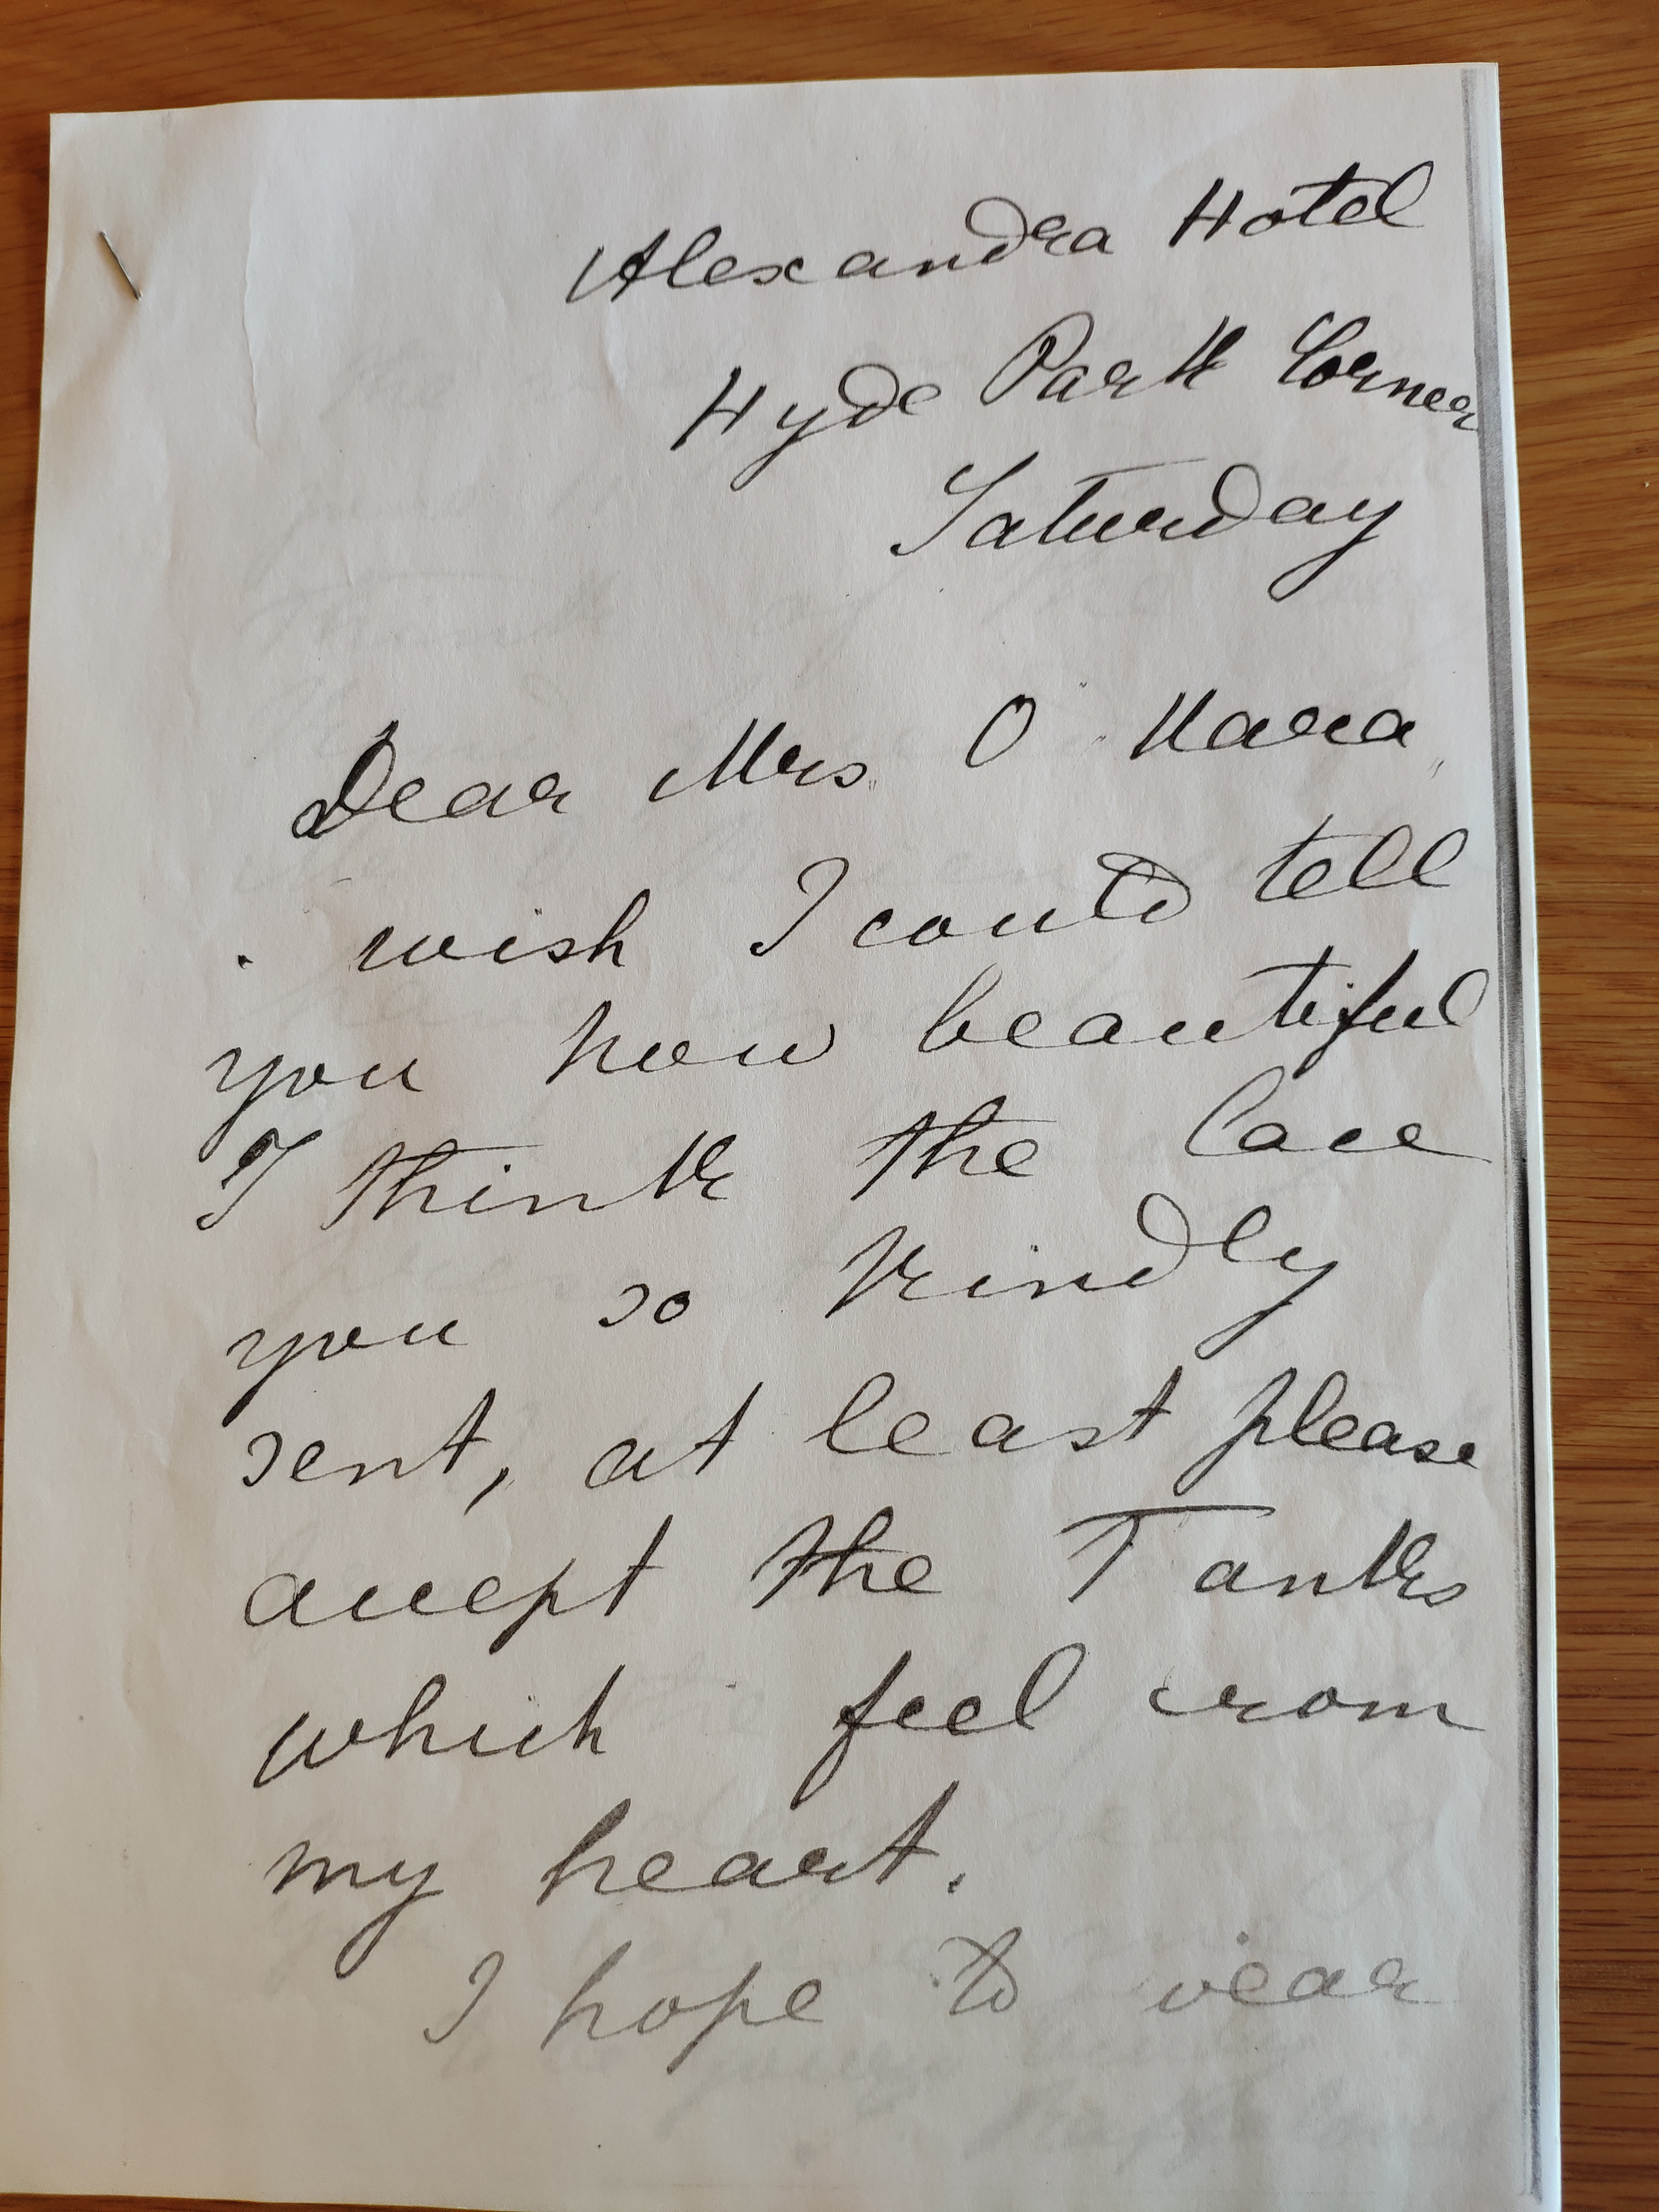 Alexandra Hotel
Hyde Park Corner
Saturday
Dear Mrs O Hara,
wish I could tell
you how beautiful
I think the lace
you so kindly
sent, at least please
accept the Tanks
which feel from
my heart.
I hope to wear